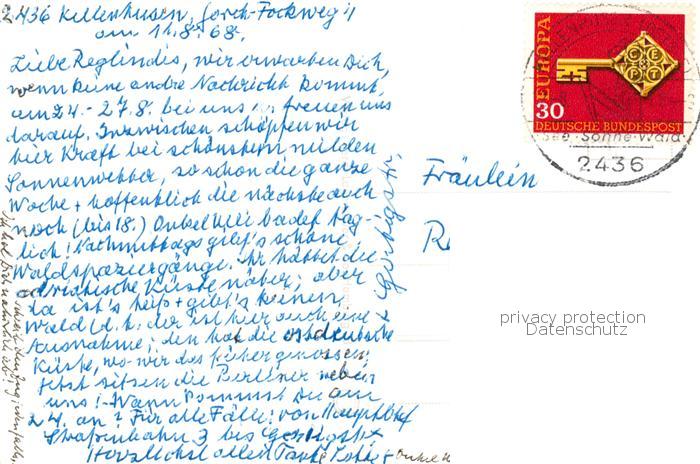 2436 Kellenhusen, Gorch-Fockweg 11
am 11.8.68.
Liebe Reglindis, wir erwarten Dich,
wenn keine andre Nachricht kommt,
am 24.-27.8. bei uns freuen uns
darauf. Inzwischen schöpfen wir
hier Kraft bei schönstem milden
Sonnenwetter, so schon die ganze
Woche + hoffentlich die nächste auch
noch (bis 18.) Onkel Uli badet täg-
lich! Nachmittags gibt's schöne
Waldspaziergänge. Ihr hattet die
adriatische Küste näher; aber
da ist's heiß + gibt's keinen
Wald (d.h. der ist hier auch eine
Ausnahme; den hat die ostdeutsche
Küste, wo wir das früher genossen;
Jetzt sitzen die Berliner neben
uns! - Wann kommst Du am
24. an? Für alle Fälle: von Hauptbhf
Straßenbahn 3 bis
Herzlichst allen Tante + Onkel
EUROPA
CEPT
30
DEUTSCHE BUNDESPOST
See - Sonne - Wald
2436
Fräulein
R
privacy protection
Datenschutz